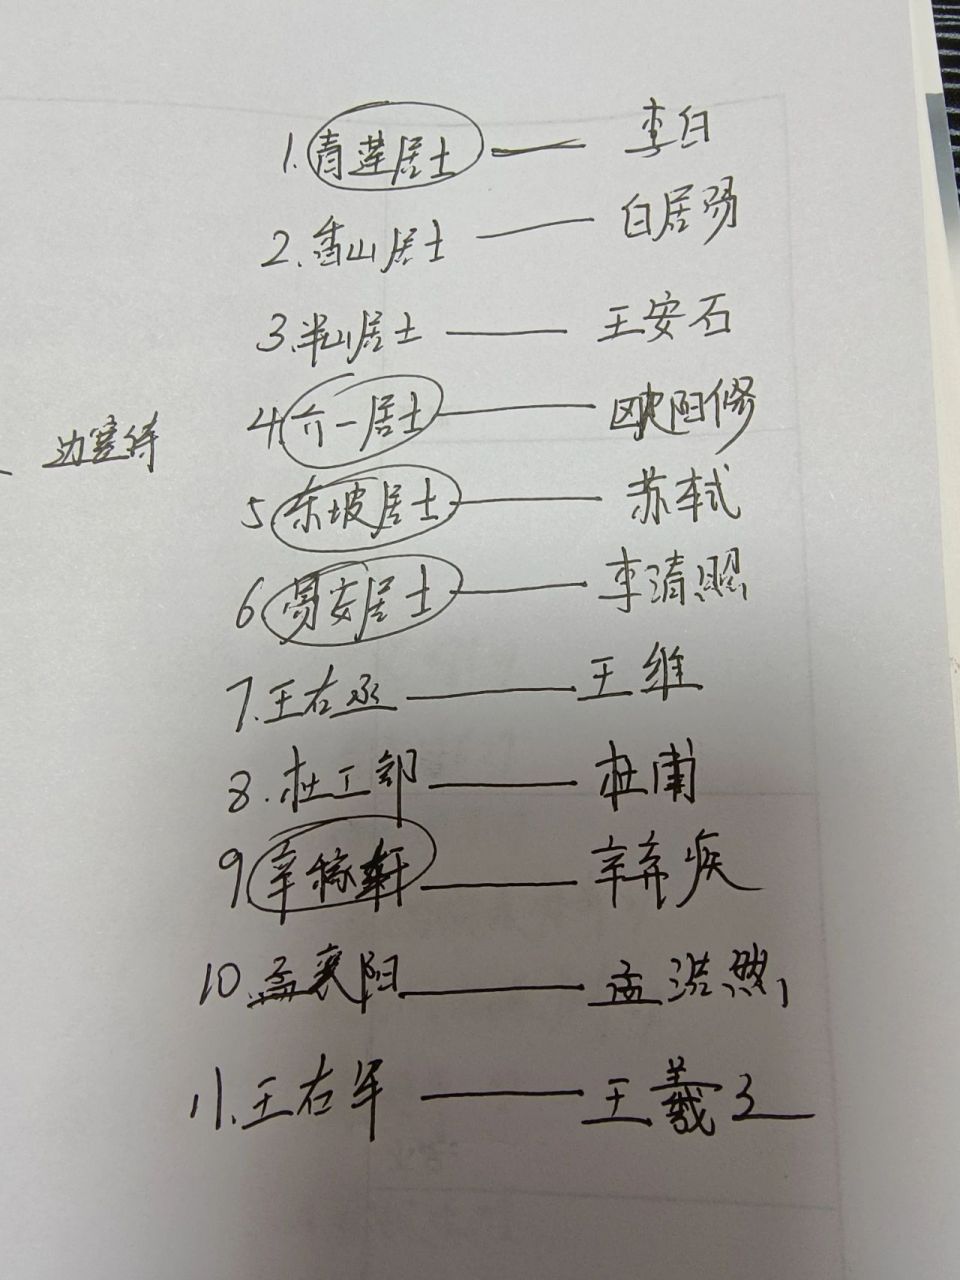 1.青莲居士 — 李白
2.香山居士 — 白居易
3.半山居士 — 王安石
4.六一居士 — 欧阳修
边塞诗
5 东坡居士 — 苏轼
6 易安居士 — 李清照
7.王右丞 — 王维
8.杜工部 — 杜甫
9 辛稼轩 — 辛弃疾
10.孟襄阳 — 孟浩然
11.王右军 — 王羲之